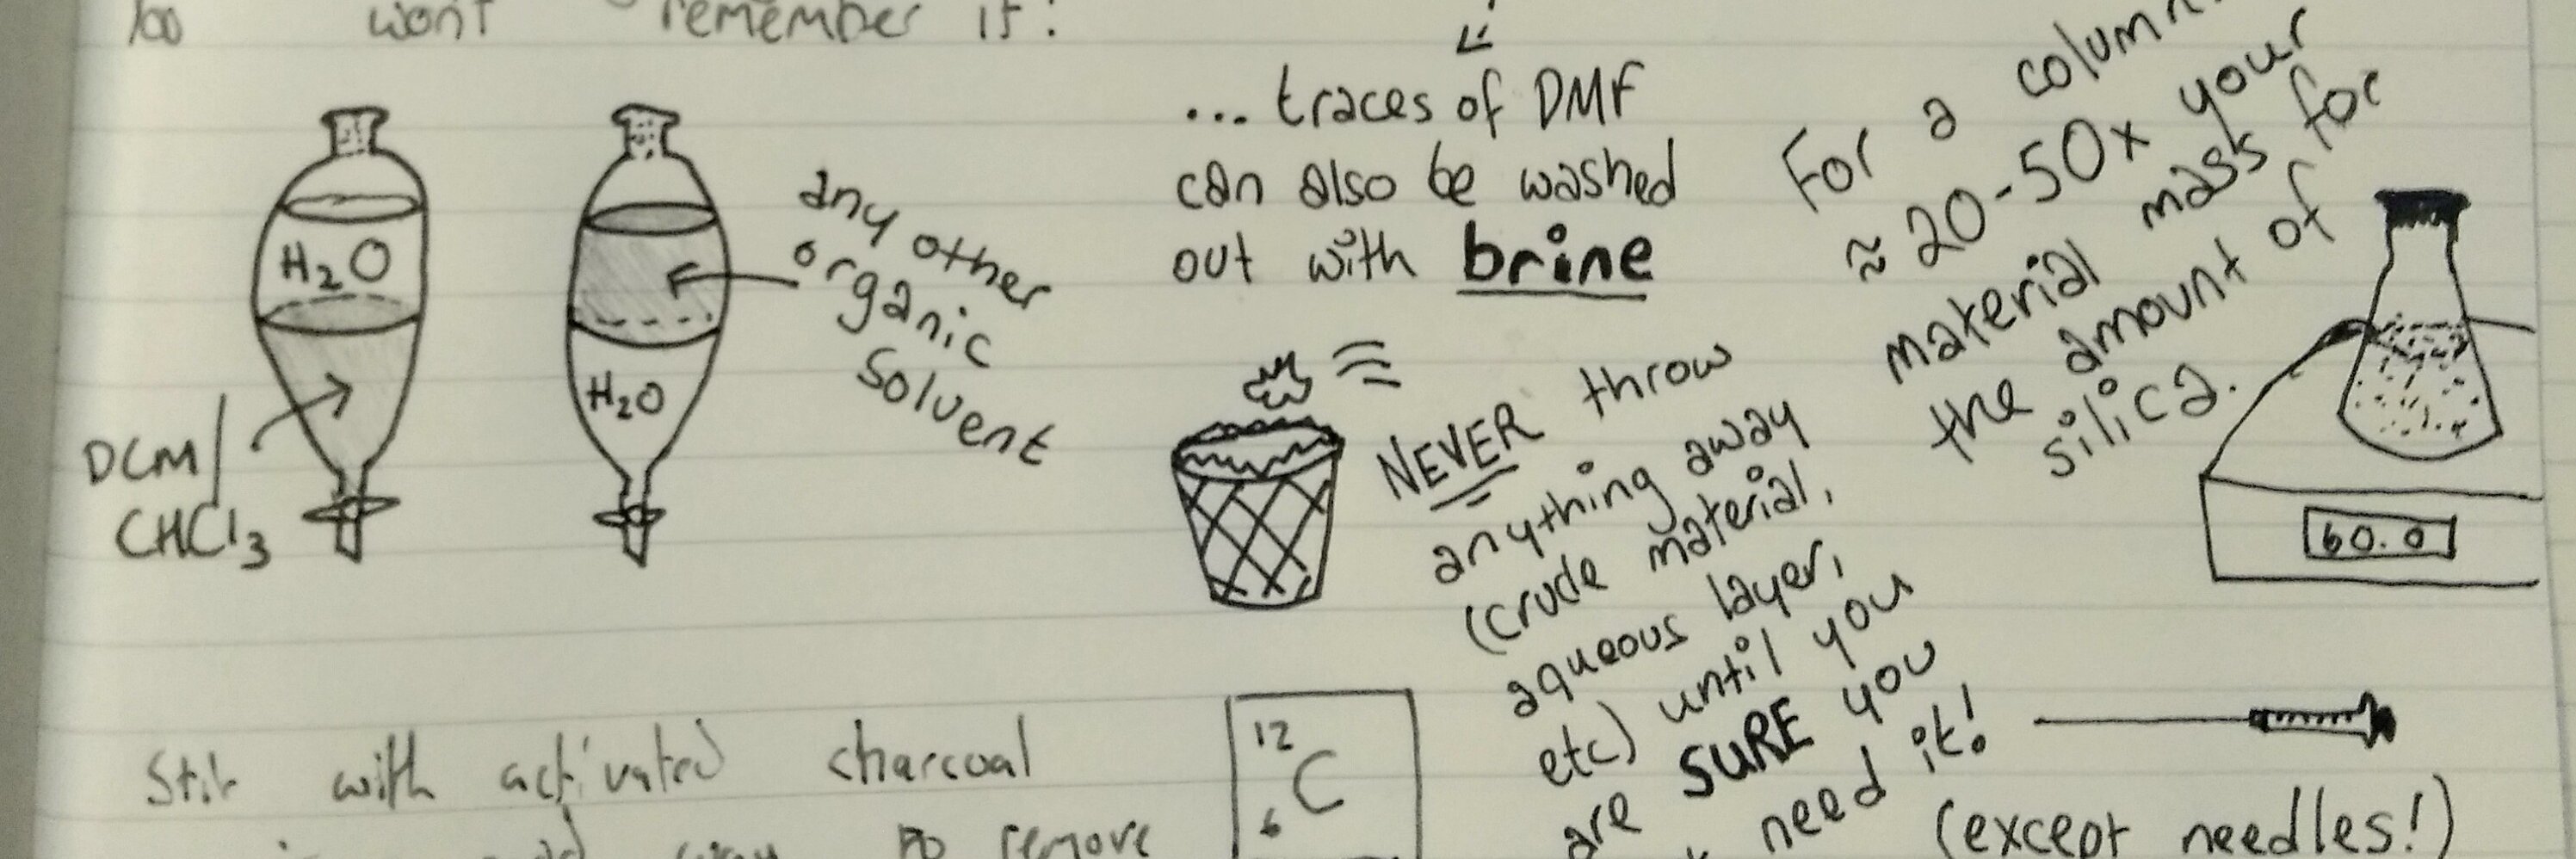 You wont remember it!
H₂O
DCM/
CHCl₃
H₂O
any other
organic
solvent
... traces of DMF
can also be washed
out with brine
For a column:
≈ 20-50x your
material mass for
the amount of
silica.
60.0
NEVER throw
anything away
(crude material,
aqueous layer,
etc) until you
are SURE you
need it!
(except needles!)
Stir with activated charcoal
way to remove
12
C
6